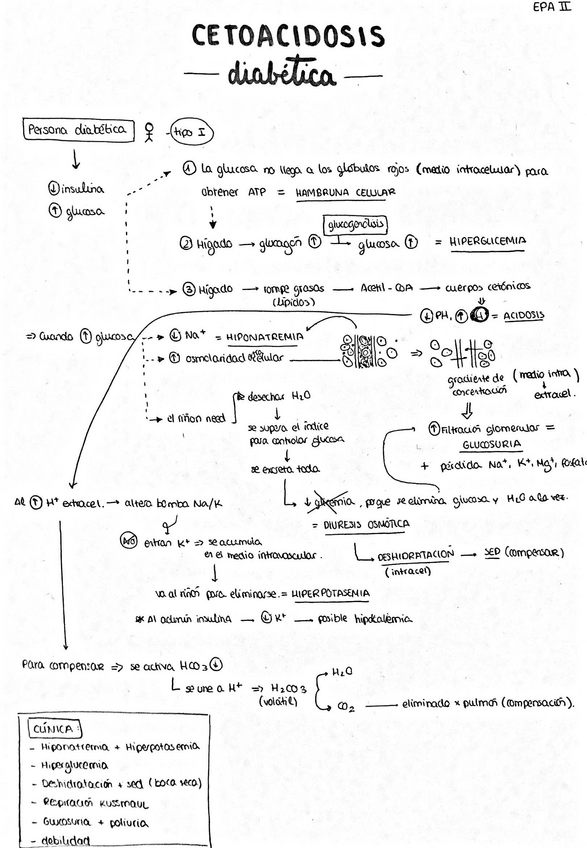 EPA II
CETOACIDOSIS
— diabética —
Persona diabética - tipo I
↓ insulina
↑ glucosa
① La glucosa no llega a los glóbulos rojos (medio intracelular) para
obtener ATP = HAMBRUNA CELULAR
glucogenólisis
② Hígado → glucagón ↑ → glucosa ↑ = HIPERGLICEMIA
③ Hígado → rompe grasas → Acetil-COA → cuerpos cetónicos
(lípidos)
↓ PH, ↑ H = ACIDOSIS
⇒ Cuando ↑ glucosa
↓ Na⁺ = HIPONATREMIA
↑ osmolaridad
gradiente de
concentración
(medio intra)
↓
extracel.
el riñon need
desechar H₂O
se supera el índice
para controlar glucosa
se excreta toda
↑ Filtración glomerular =
GLUCOSURIA
+ pérdida Na⁺, K⁺, Mg⁺, fosfato
↓ glicemia, porque se elimina glucosa y H₂O a la vez.
= DIURESIS OSMÓTICA
DESHIDRATACIÓN → SED (compensar)
(intracel)
Al ↑ H⁺ extracel. → altera bomba Na/K
NO entran K⁺ ⇒ se acumula
en el medio intravascular.
va al riñón para eliminarse. = HIPERPOTASEMIA
* Al admin insulina → ↓ K⁺ → posible hipokalemia
Para compensar ⇒ se activa HCO₃ ↓
se une a H⁺ ⇒ H₂CO₃
(volátil)
H₂O
CO₂ — eliminado x pulmón (compensación).
CLÍNICA:
- Hiponatremia + Hiperpotasemia
- Hiperglucemia
- Deshidratación + sed (boca seca)
- Respiración Kussmaul
- Glucosuria + poliuria
- debilidad